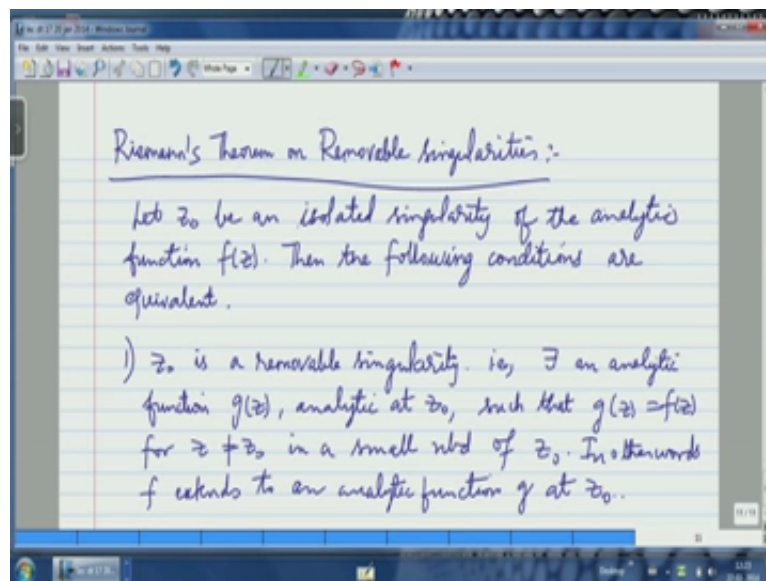 File Edit View Insert Actions Tools Help
Riemann's Theorem on Removable Singularities :-
Let z₀ be an isolated singularity of the analytic
function f(z). Then the following conditions are
equivalent.
1) z₀ is a removable singularity. ie, ∃ an analytic
function g(z), analytic at z₀, such that g(z) = f(z)
for z ≠ z₀ in a small nbd of z₀. In otherwords
f extends to an analytic function g at z₀.